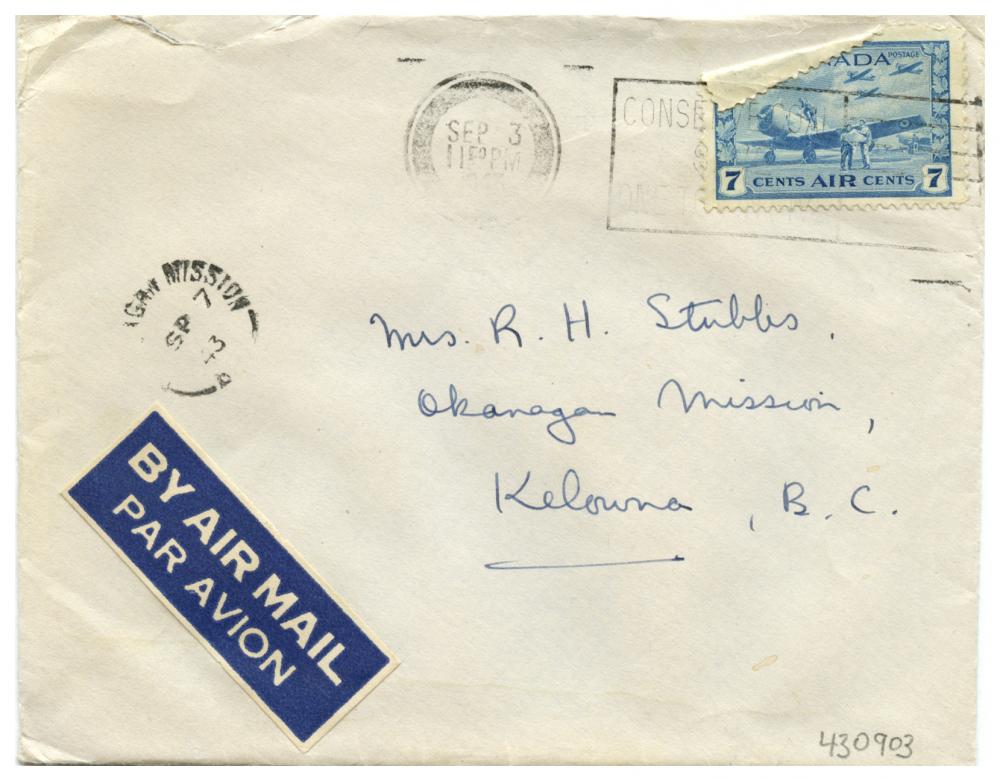 SEP 3
11 50 PM
CONSE
NADA POSTAGE
7 CENTS AIR CENTS 7
MISSION
SP 7
43
Mrs. R. H. Stubbs.
Okanagan Mission,
Kelowna, B. C.
BY AIR MAIL
PAR AVION
430903